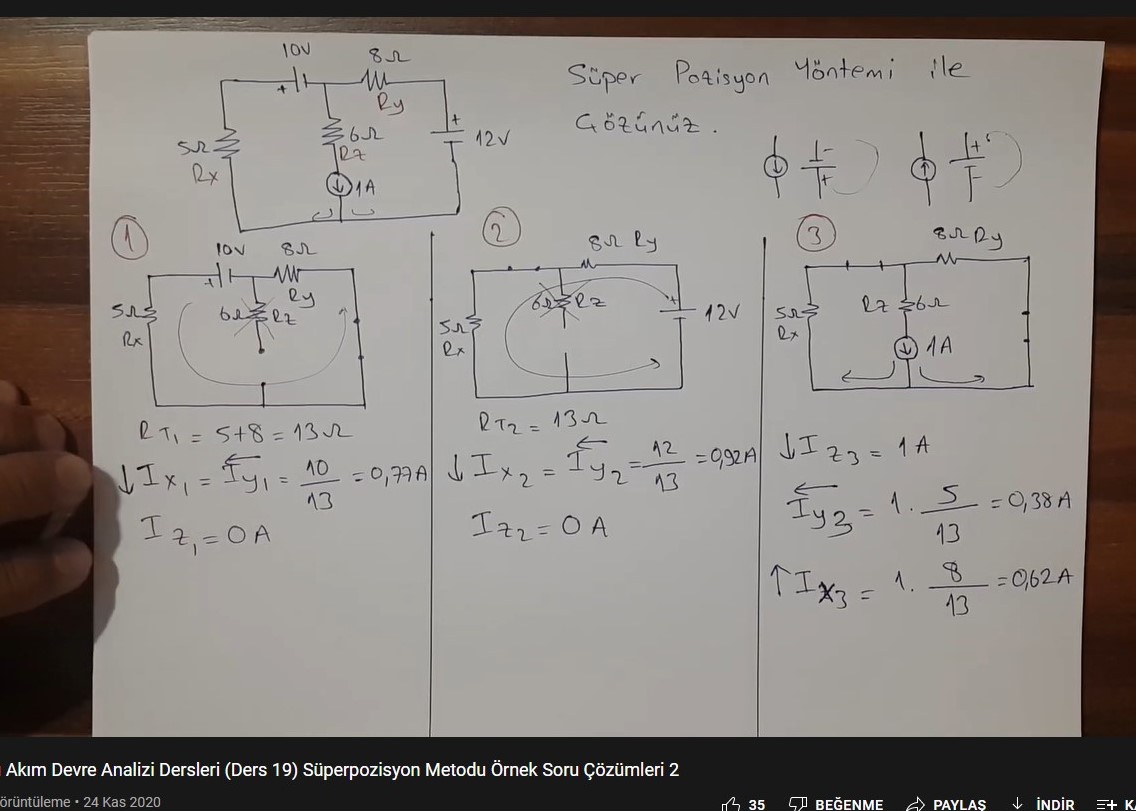 Süper Pozisyon Yöntemi ile
Çözünüz.
10V
8Ω
Ry
5Ω
Rx
6Ω
Rz
1A
+
12V
+
-
+
+
-
1
10V
8Ω
+
Ry
5Ω
Rx
6Ω Rz
RT1 = 5+8 = 13Ω
↓Ix1 = Iy1 = 10/13 = 0,77A
Iz1 = 0A
2
8Ω Ry
6Ω Rz
5Ω
Rx
+
12V
RT2 = 13Ω
↓Ix2 = Iy2 = 12/13 = 0,92A
Iz2 = 0A
3
8Ω Ry
Rz 6Ω
5Ω
Rx
1A
↓Iz3 = 1A
Iy3 = 1. 5/13 = 0,38A
↑Ix3 = 1. 8/13 = 0,62A
Akım Devre Analizi Dersleri (Ders 19) Süperpozisyon Metodu Örnek Soru Çözümleri 2
örüntüleme • 24 Kas 2020
35 BEĞENME PAYLAŞ İNDİR